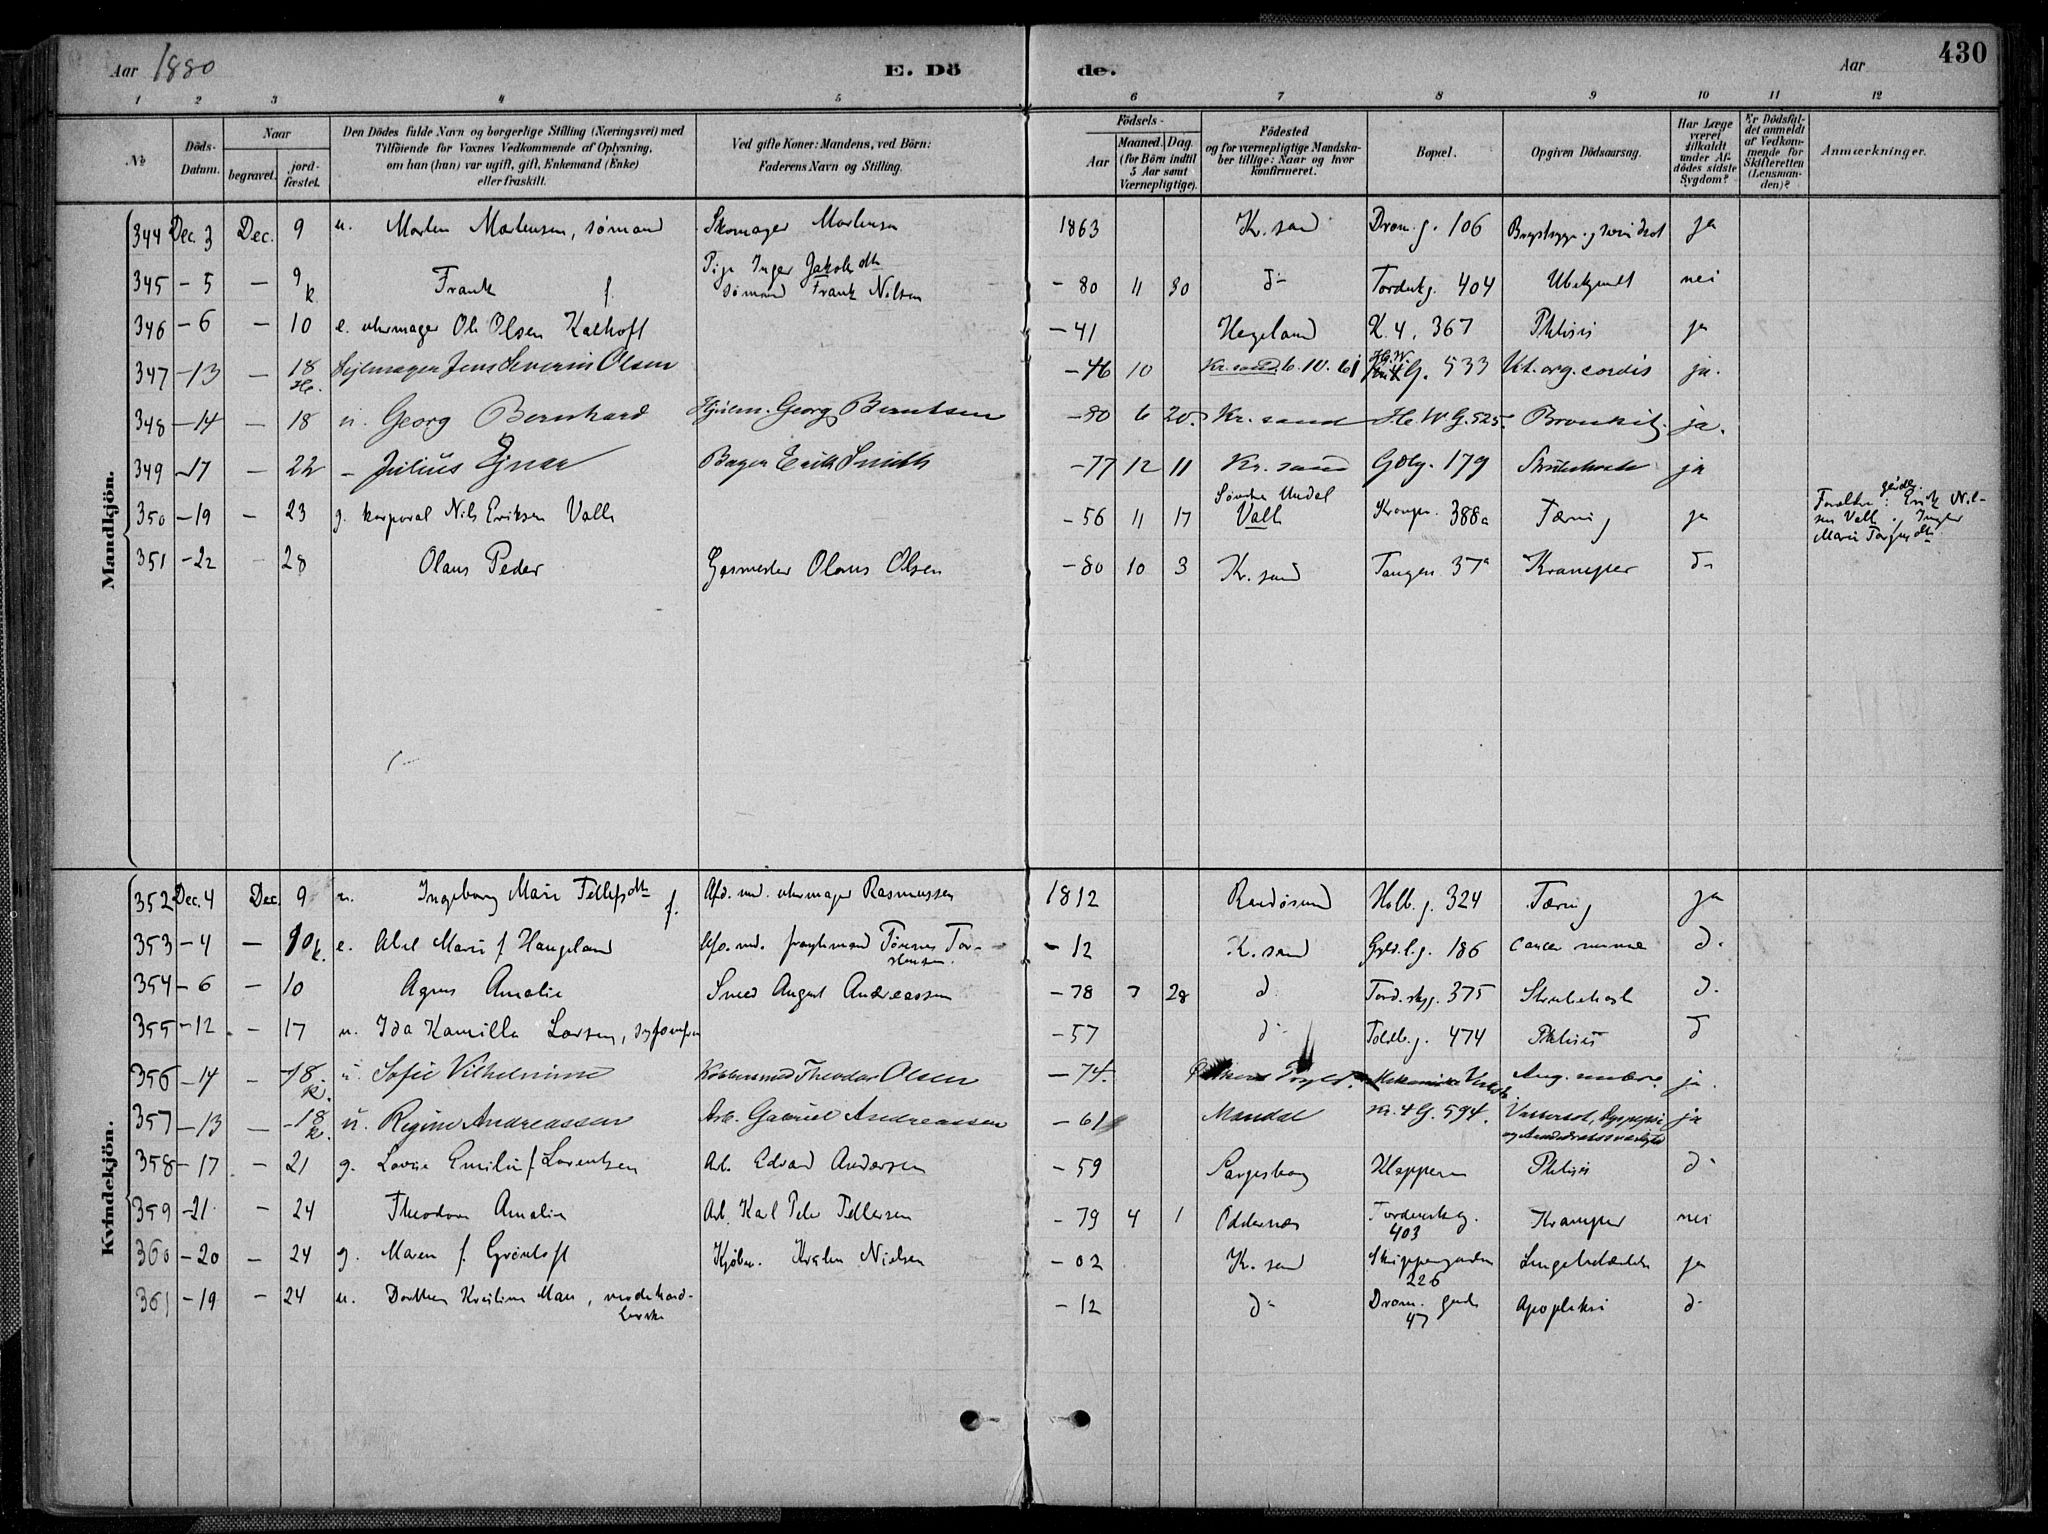 Aar 1880 E. Dö de. Aar 430
1 2 3 4 5 6 7 8 9 10 11 12
No
Döds-Datum.
Naar
begravet.
jord-fæstet.
Den Dödes fulde Navn og borgerlige Stilling (Næringsvei) med
Tilföiende for Voxnes Vedkommende af Oplysning,
om han (hun) var ugift, gift, Enkemand (Enke)
eller fraskilt.
Ved gifte Koner: Mandens, ved Börn:
Faderens Navn og Stilling.
Födsels-
Aar
Maaned.
Dag.
(for Börn indtil
5 Aar samt
Værnepligtige).
Födested
og for værnepligtige Mandska-
ber tillige: Naar og hvor
konfirmeret.
Bopæl.
Opgiven Dödsaarsag.
Har Læge
været
tilkaldt
under Af-
dödes sidste
Sygdom?
Er Dödsfal-
det anmeldt
af Vedkom-
mende for
Skifteretten
(Lensman-
den)?
Anmærkninger.
Mandkjön.
344 Dec. 3 Dec. 9 u. Morten Mortensen, sømand Skomager Mortensen 1863 Kr. sand Dron. g. 106 ja
345 - 5 - 9 k Frank f. Pige Inger Jakobsdtr
sømand Frank Nilsen - 80 11 30 d- Tordenskg. 404 Ubekjendt nei
346 - 6 - 10 e. uhrmager Ole Olsen Kalhoft - 41 Hegeland K. 4, 367 Phtisis ja
347 - 13 - 18 Seilmager Jens Severin Olsen - 46 10 Kr. sand 6. 10. 61 H. W. G. 533 Vit. org. cordis ja.
348 - 14 - 18 u. Georg Bernhard Hjulm. Georg Berntsen - 80 6 20. Kr. sand H. W. G. 525. Bronkit. ja.
349 - 17 - 22 - Julius Ejnar Bager Erik Smith - 77 12 11 Kr. sand Gdlg. 179 Strubehoste ja
350 - 19 - 23 g. korporal Nils Eriksen Valle - 56 11 17 Søndre Undal
Valle 388a Tæring ja Forældre: gaardbr. Erik Nil-
sen Valle
351 - 22 - 28 Olaus Peder Gasmester Olaus Olsen - 80 10 3 Kr. sand Tangen 37a Kramper d-
Kvindekjön.
352 Dec. 4 Dec. 9 u. Ingeborg Marie Tellefsdtr f. Afd. med. uhrmager Rasmussen 1812 Randøsund Holb. g. 324 Tæring ja
353 - 4 - 10 k. e. Abel Marie f Haugeland Afd. med. fragtmand Tønnes Tor-
stensen. - 12 K. sand Gyld. l. g. 186 cancer mamæ d-
354 - 6 - 10 Agnes Amalie Smed August Andreassen - 78 7 28 d- Tord. skg. 375 Strubehoste d-
355 - 12 - 17 u. Ida Kamilla Larsen, syjomfru - 57 d- Toldb. g. 474 Phtisis d-
356 - 14 - 18 k. u. Sofie Vilhelmine Kobbersmed Theodor Olsen - 74. ja.
357 - 13 - 18 k. u. Regine Andreassen Arb. Gabriel Andreassen - 61 Mandal Kr. 4 G. 594. Vattersot, Dyspepsi ja
358 - 17 - 21 g. Lovise Emilie f Lorentzen Arb. Edvard Andersen - 59 Sarpsborg Kleppen Phtisis d-
359 - 21 - 24 Theodora Amalie Arb. Karl Peter Pettersen - 79 4 1 Oddernes Tordenskg.
403 Kramper nei
360 - 20 - 24 g. Maren f. Grøntoft Kjøbm. Kristen Nielsen - 02 Kr. sand Skippergaden
226 Lungebetændelse ja
361 - 19 - 24 u. Dorthea Kristine Marr, modehand-
lerske - 12 d- Dron. gade
47 Apoplexi d-